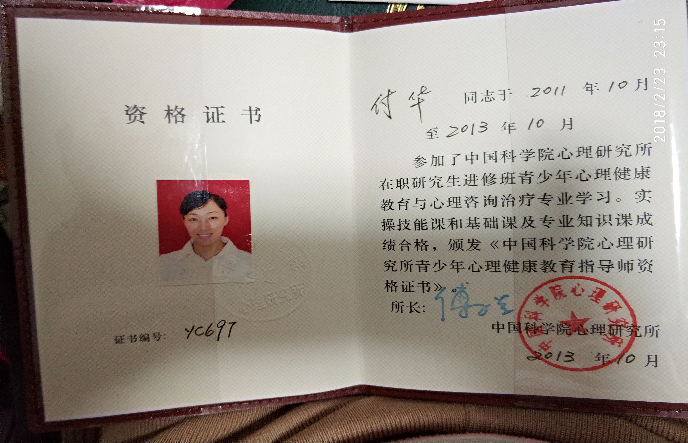 资格证书
证书编号: YC697
付华 同志于 2011 年 10 月
至 2013 年 10 月
参加了中国科学院心理研究所
在职研究生进修班青少年心理健康
教育与心理咨询治疗专业学习。实
操技能课和基础课及专业知识课成
绩合格，颁发《中国科学院心理研
究所青少年心理健康教育指导师资
格证书》。
所长:
中国科学院心理研究所
2013 年 10 月
中国科学院心理研究所
2018/2/23 23:15